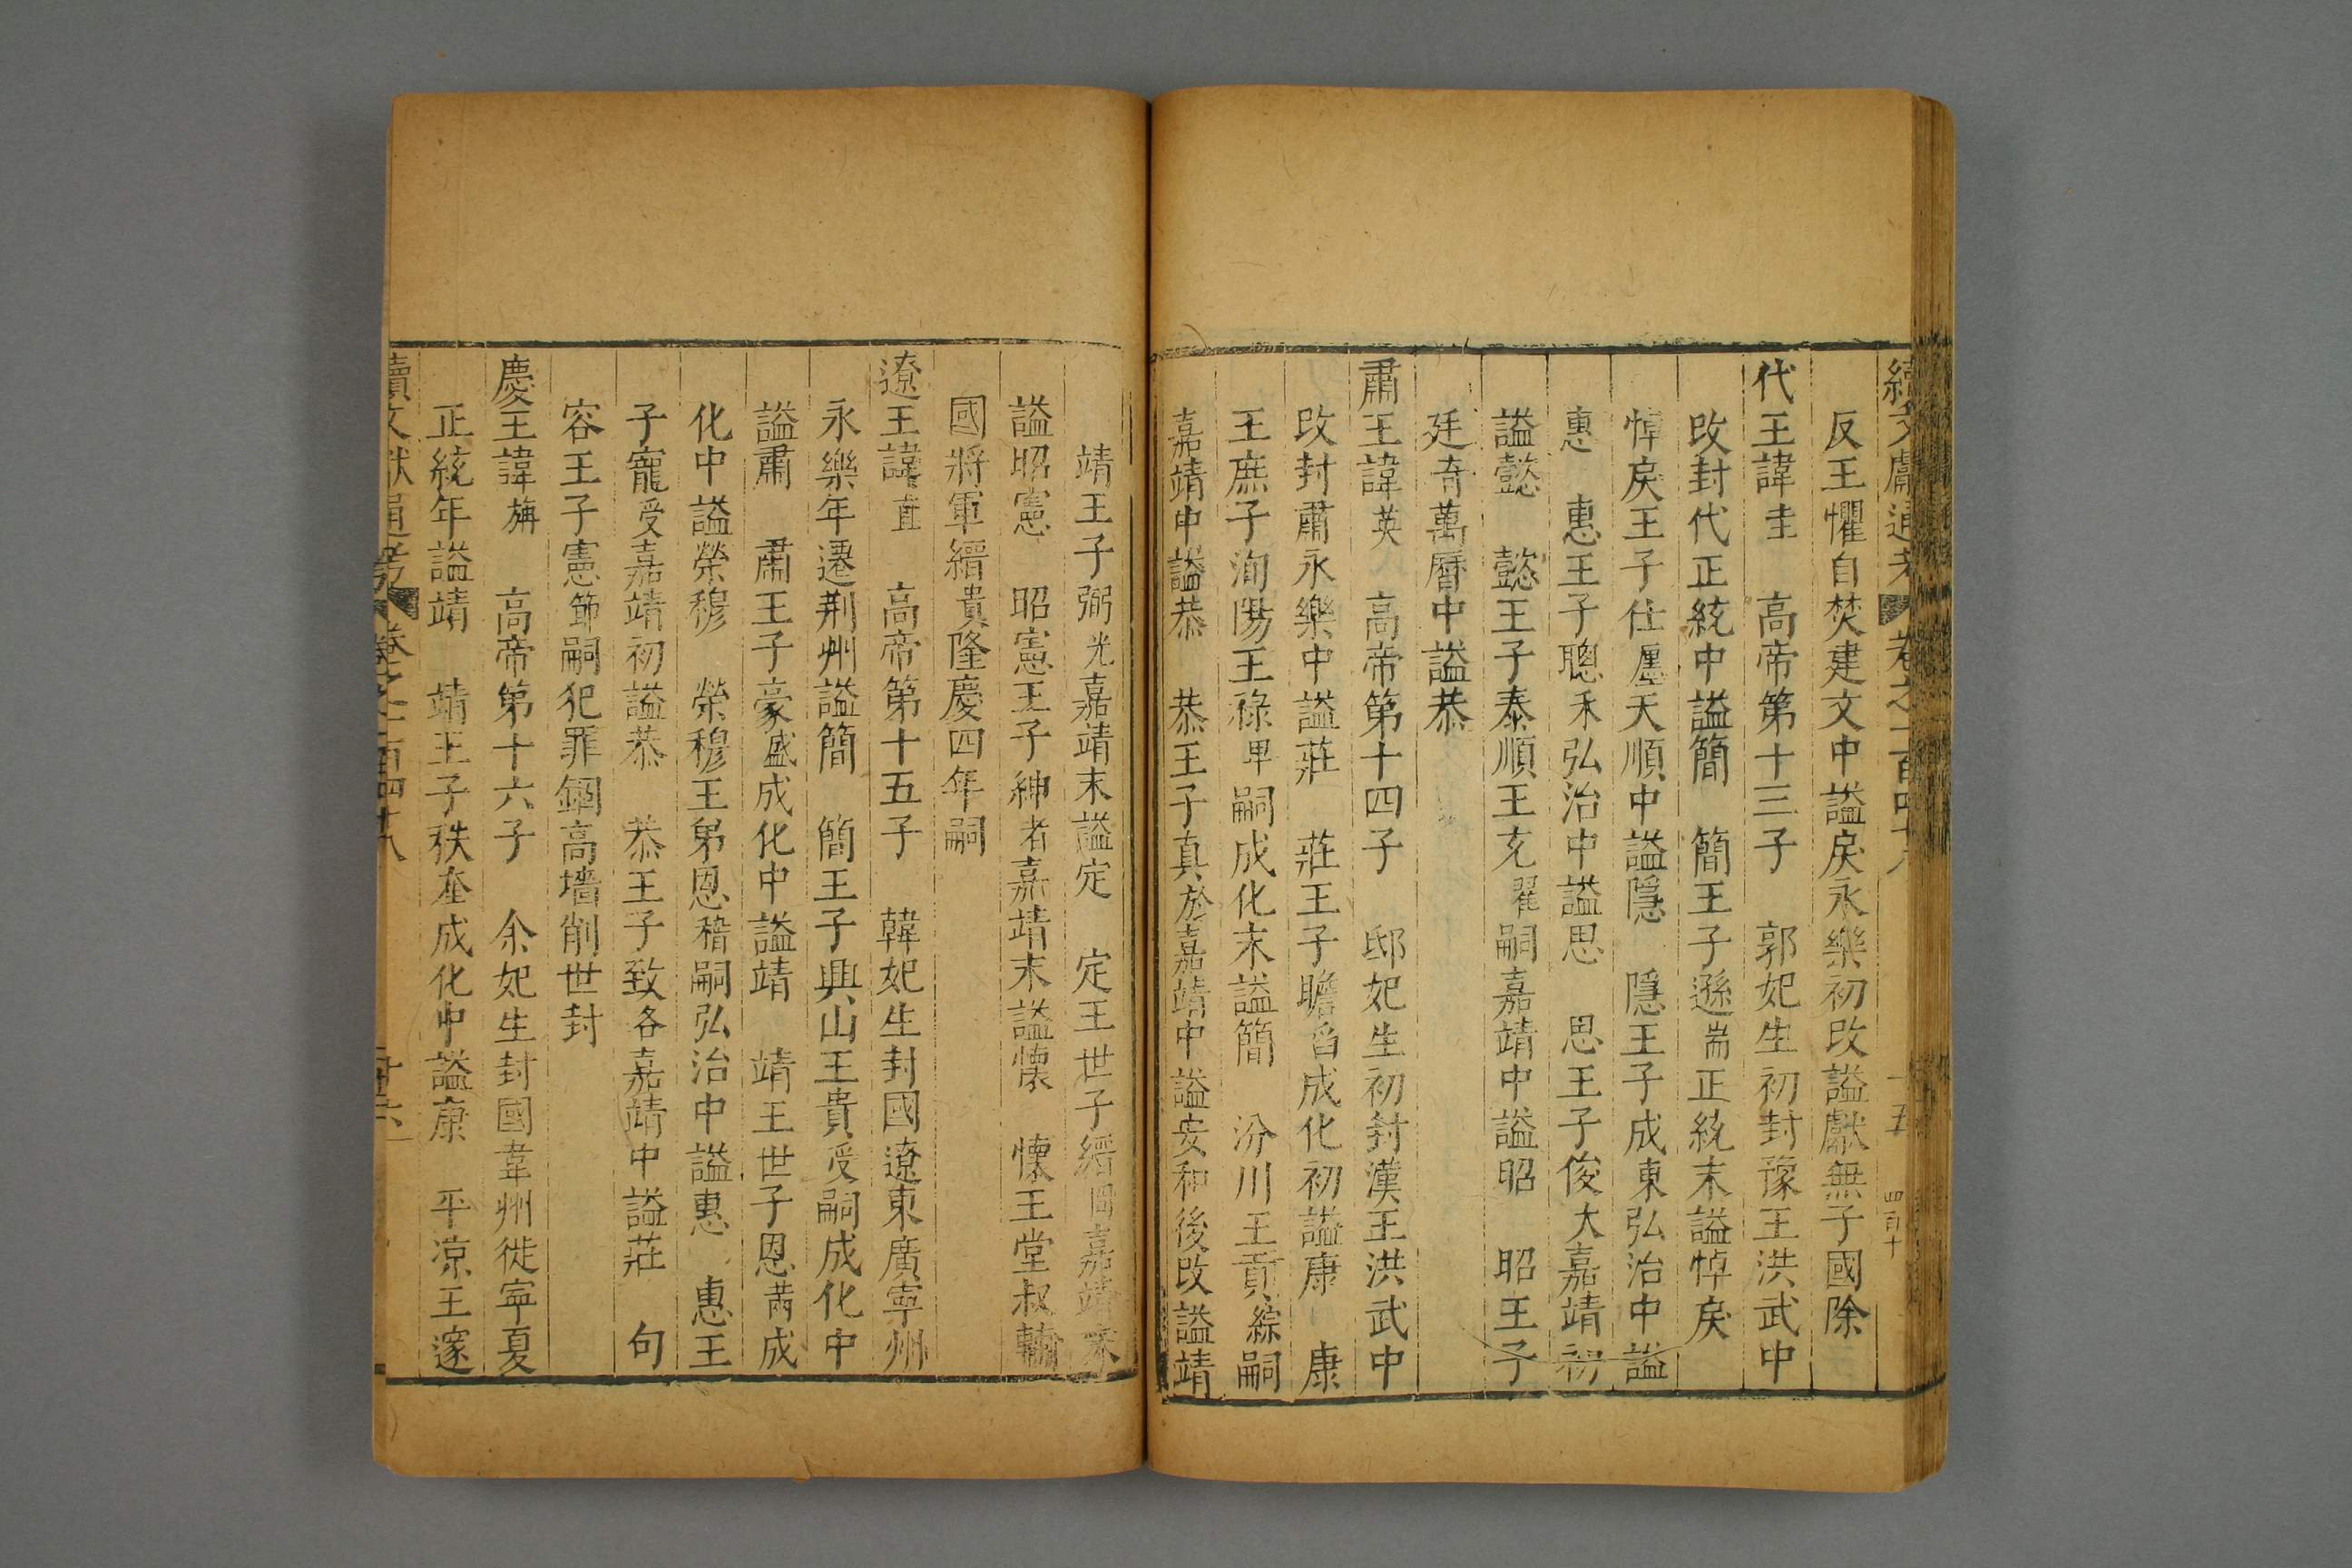 續文獻通考 卷之二百四十八
反王懼自焚建文中謚戾永樂初改謚獻無子國除
代王諱 高帝第十三子 郭妃生初封豫王洪武中
改封代正統中謚簡 簡王子遜 正統末謚悼戾
悼戾王子仕 天順中謚隱 隱王子成 弘治中謚
惠 惠王子聰 弘治中謚思 思王子俊 嘉靖初
謚懿 懿王子泰順王充 嗣嘉靖中謚昭 昭王子
廷奇萬曆中謚恭
肅王諱英 高帝第十四子 邸妃生初封漢王洪武中
改封肅永樂中謚莊 莊王子瞻 成化初謚康 康
王庶子洵陽王祿 嗣成化末謚簡 汾川王貢綜嗣
嘉靖中謚恭 恭王子真於嘉靖中謚安和後改謚靖
靖王子弼 嘉靖末謚定 定王世子縉 嘉靖末
謚昭憲 昭憲王子紳者嘉靖末謚懷 懷王堂叔輔
國將軍縉貴隆慶四年嗣
遼王諱直 高帝第十五子 韓妃生封國遼東廣寧州
永樂年遷荆州謚簡 簡王子興山王貴受嗣成化中
謚肅 肅王子豪盛成化中謚靖 靖王世子恩 成
化中謚榮穆 榮穆王弟恩稽嗣弘治中謚惠 惠王
子寵受嘉靖初謚恭 恭王子致各嘉靖中謚莊 句
容王子憲節嗣犯罪錮高墻削世封
慶王諱 高帝第十六子 余妃生封國韋州徙寧夏
正統年謚靖 靖王子秩 成化中謚康 平涼王邃
續文獻通考 卷之二百四十八